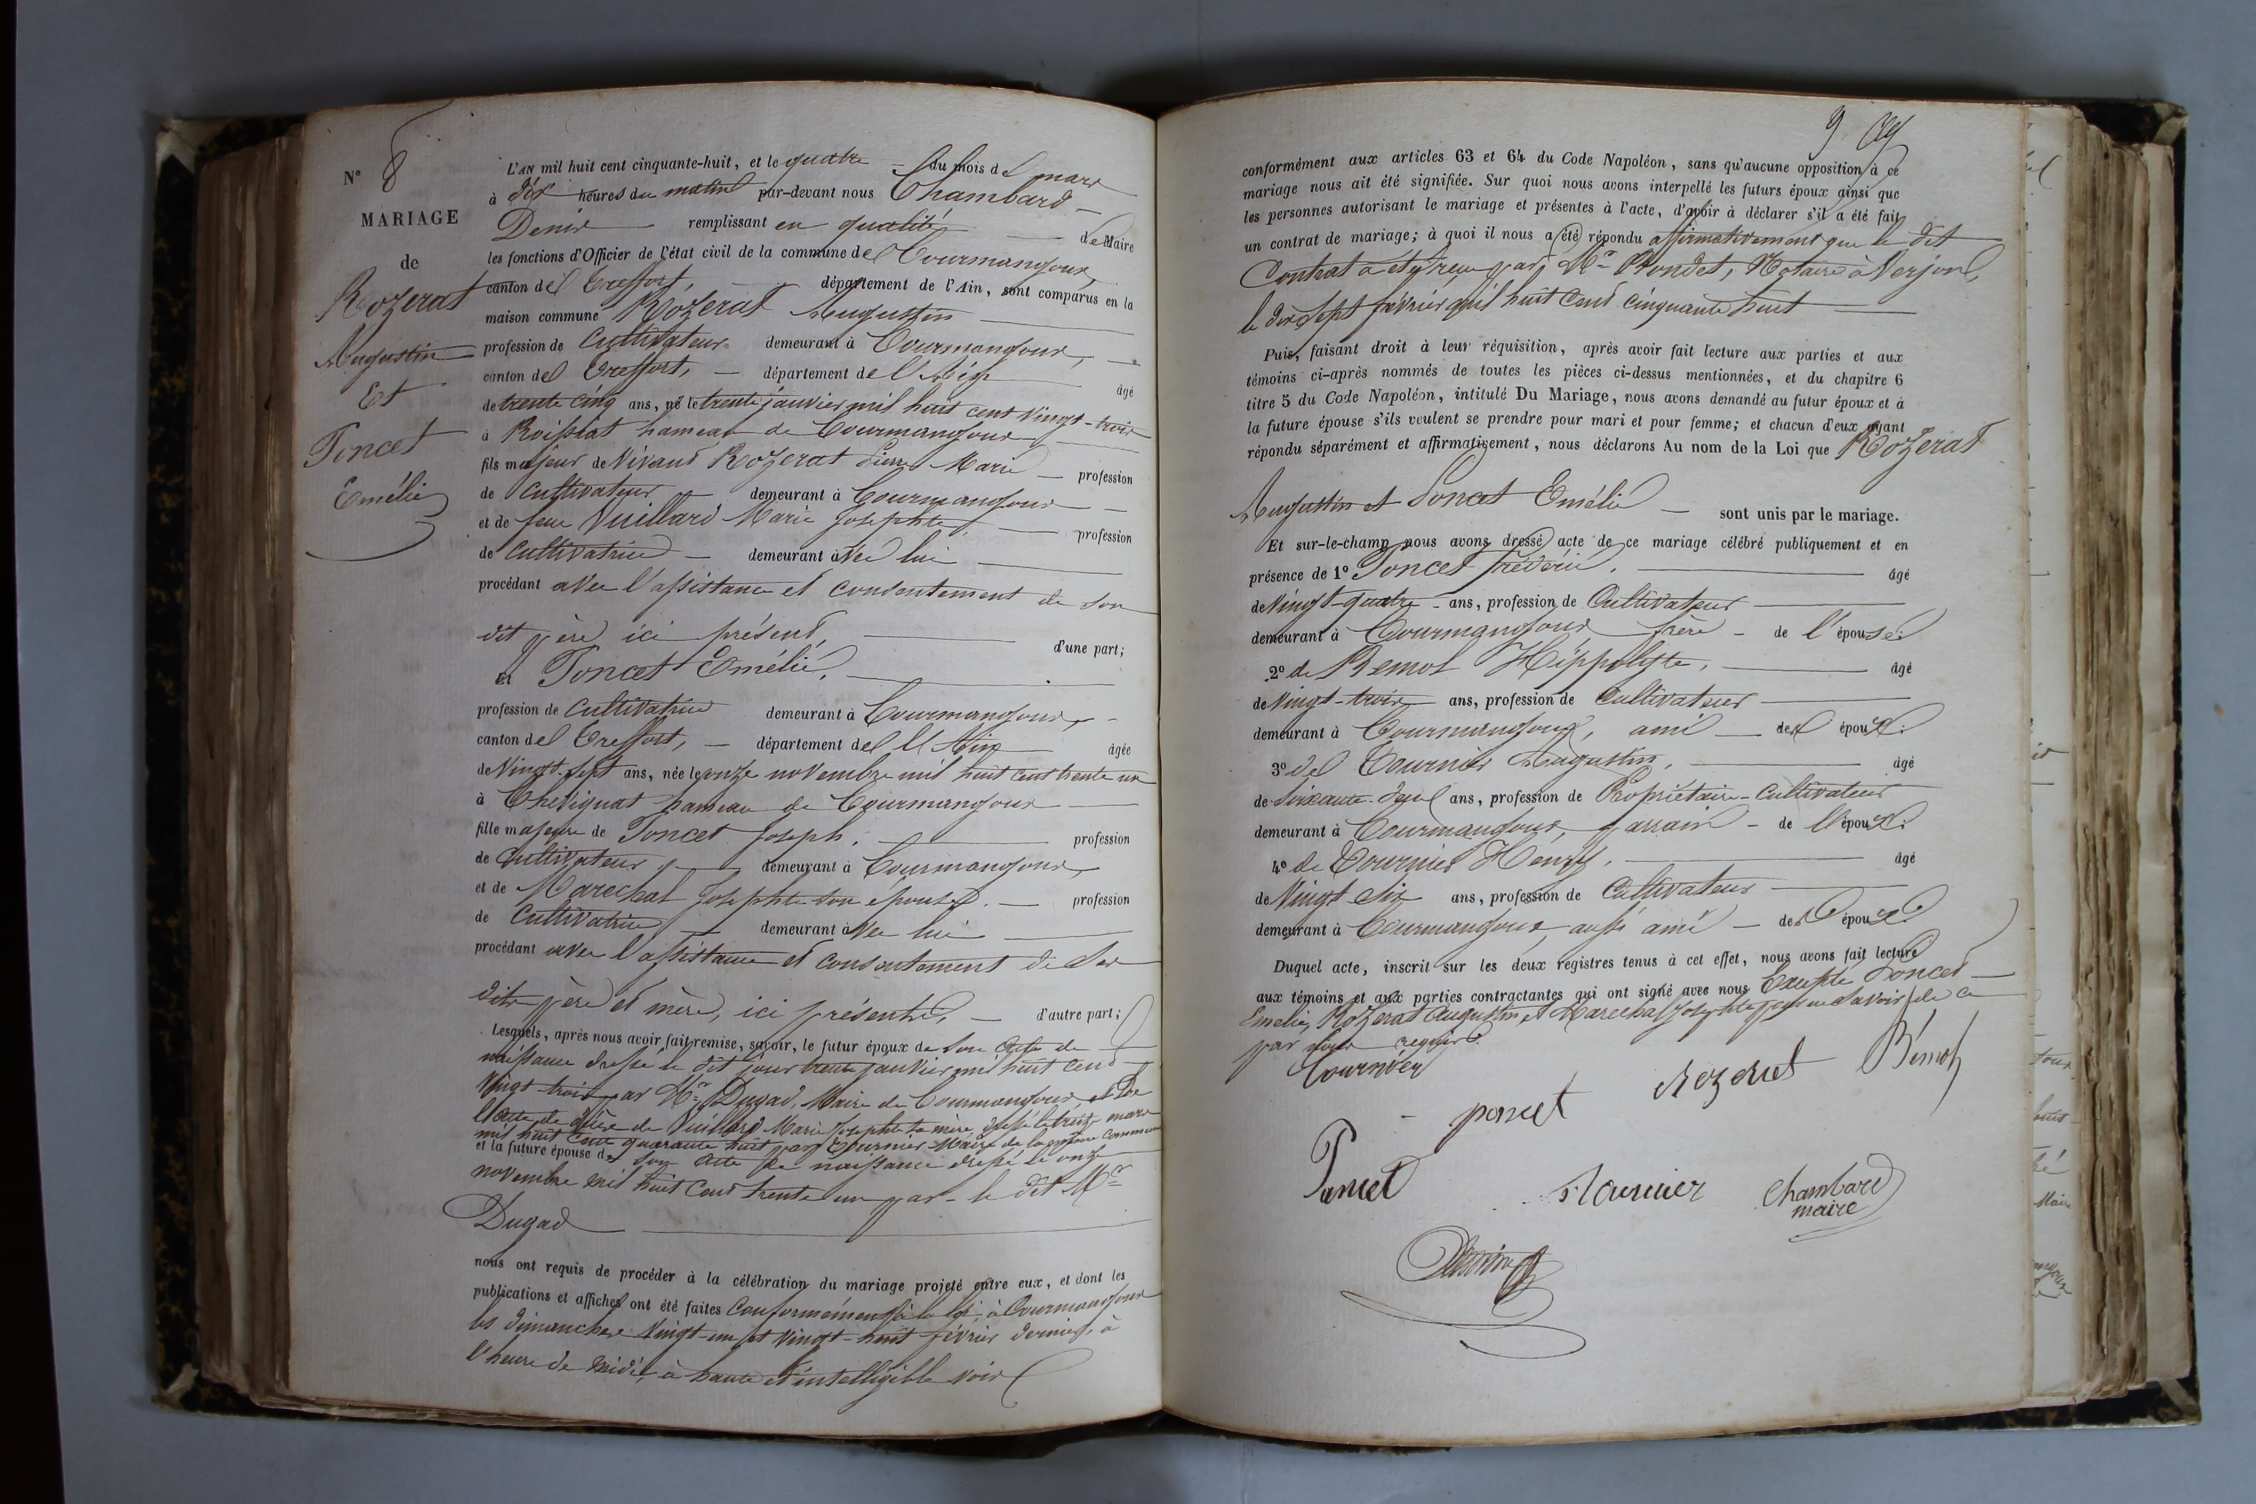 N° 8
MARIAGE
de
Rozerat
Augustin
Et
Poncet
Emélie
L'AN mil huit cent cinquante-huit, et le quatre du mois de mars
à dix heures du matin par-devant nous Chambard
Denis remplissant en qualité de Maire
les fonctions d'Officier de l'état civil de la commune de Courmangoux,
canton de Treffort, département de l'Ain, sont comparus en la
maison commune Rozerat Augustin
profession de Cultivateur demeurant à Courmangoux,
canton de Treffort, département de l'Ain âgé
de trente cinq ans, né le trente janvier mil huit cent vingt-trois
à Roissiat hameau de Courmangoux
fils majeur de vivant Rozerat Pierre Marie profession
de cultivateur demeurant à Courmangoux
et de feue Vuillard Marie Josephte, profession
de cultivatrice demeurant avec lui
procédant avec l'assistance et consentement de son
dit père ici présent, d'une part;
et Poncet Emélie,
profession de cultivatrice demeurant à Courmangoux,
canton de Treffort, département de l'Ain âgée
de Vingt-sept ans, née le onze novembre mil huit cent trente un
à Chevignat hameau de Courmangoux
fille majeure de Poncet Joseph, profession
de Cultivateur demeurant à Courmangoux,
et de Marechal Josephte son épouse, profession
de Cultivatrice demeurant avec lui
procédant avec l'assistance et consentement de ses
dits père et mère, ici présents, d'autre part;
Lesquels, après nous avoir fait remise, savoir, le futur époux de son acte de
naissance dressé le dit jour trente janvier mil huit cent
vingt-trois par Mr Dugad, Maire de Courmangoux, et de
l'acte de décès de Vuillard Marie Josephte sa mère, dressé le treize mars
mil huit cent quarante huit par Tournier Maire de la même commune
et la future épouse de son acte de naissance dressé le onze
novembre mil huit cent trente un par le dit Mr
Dugad
nous ont requis de procéder à la célébration du mariage projeté entre eux, et dont les
publications et affiches ont été faites Conformément à la loi, à Courmangoux
les dimanches vingt-un et vingt-huit février dernier, à
l'heure de midi, à haute et intelligible voix
9
conformément aux articles 63 et 64 du Code Napoléon, sans qu'aucune opposition à ce
mariage nous ait été signifiée. Sur quoi nous avons interpellé les futurs époux ainsi que
les personnes autorisant le mariage et présentes à l'acte, d'avoir à déclarer s'il a été fait
un contrat de mariage; à quoi il nous a été répondu affirmativement que le dit
Contrat a été reçu par Mr Rondet, Notaire à Verjon,
le dix sept février mil huit cent cinquante huit
Puis, faisant droit à leur réquisition, après avoir fait lecture aux parties et aux
témoins ci-après nommés de toutes les pièces ci-dessus mentionnées, et du chapitre 6
titre 5 du Code Napoléon, intitulé Du Mariage, nous avons demandé au futur époux et à
la future épouse s'ils veulent se prendre pour mari et pour femme; et chacun d'eux ayant
répondu séparément et affirmativement, nous déclarons Au nom de la Loi que Rozerat
Augustin et Poncet Emélie sont unis par le mariage.
Et sur-le-champ nous avons dressé acte de ce mariage célébré publiquement et en
présence de 1° Poncet Frédéric, âgé
de Vingt-quatre ans, profession de Cultivateur
demeurant à Courmangoux frère de l'épouse.
2° de Remot Hippolyte, âgé
de Vingt-trois ans, profession de Cultivateur
demeurant à Courmangoux, ami de l'époux.
3° de Tournier Augustin, âgé
de Soixante-deux ans, profession de Propriétaire-Cultivateur
demeurant à Courmangoux, parrain de l'époux.
4° de Tournier Henry, âgé
de Vingt six ans, profession de Cultivateur
demeurant à Courmangoux, aussi ami de l'époux.
Duquel acte, inscrit sur les deux registres tenus à cet effet, nous avons fait lecture
aux témoins et aux parties contractantes qui ont signé avec nous Excepté Poncet
Emélie, Rozerat Augustin et Marechal Josephte pour ne savoir de ce
par nous requis.
Tournier
poncet
Rozerat
Rémot
Poncet
Tournier
Chambard
maire